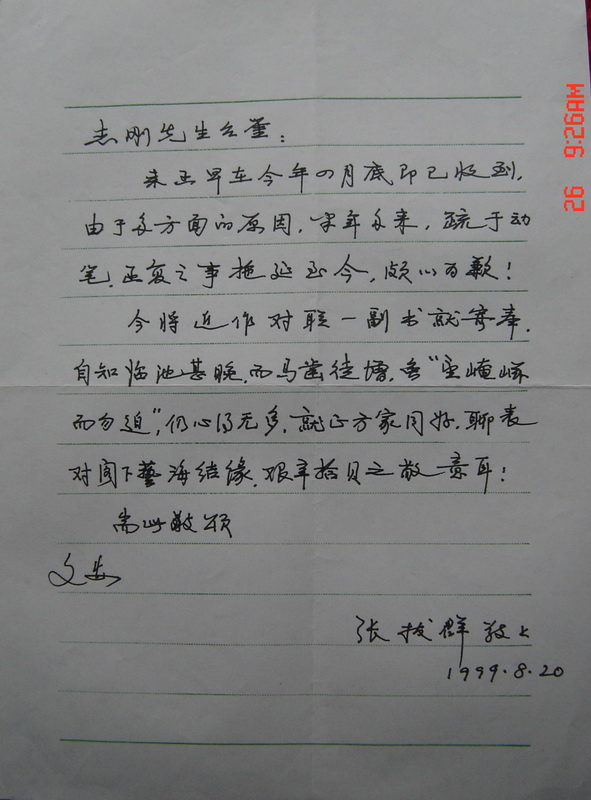 志刚先生台鉴:
来函早在今年四月底即已收到,
由于多方面的原因,半年多来,疏于动
笔,函复之事拖延至今,颇以为歉!
今将近作对联一副书就寄奉,
自知临池甚晚,而马齿徒增,吾“望崦嵫
而勿迫”,仍心得无多,就正方家同好,聊表
对阁下艺海结缘,艰辛拾贝之敬意耳!
耑此敬颂
文安
张拔群敬上
1999.8.20
26 9:26AM